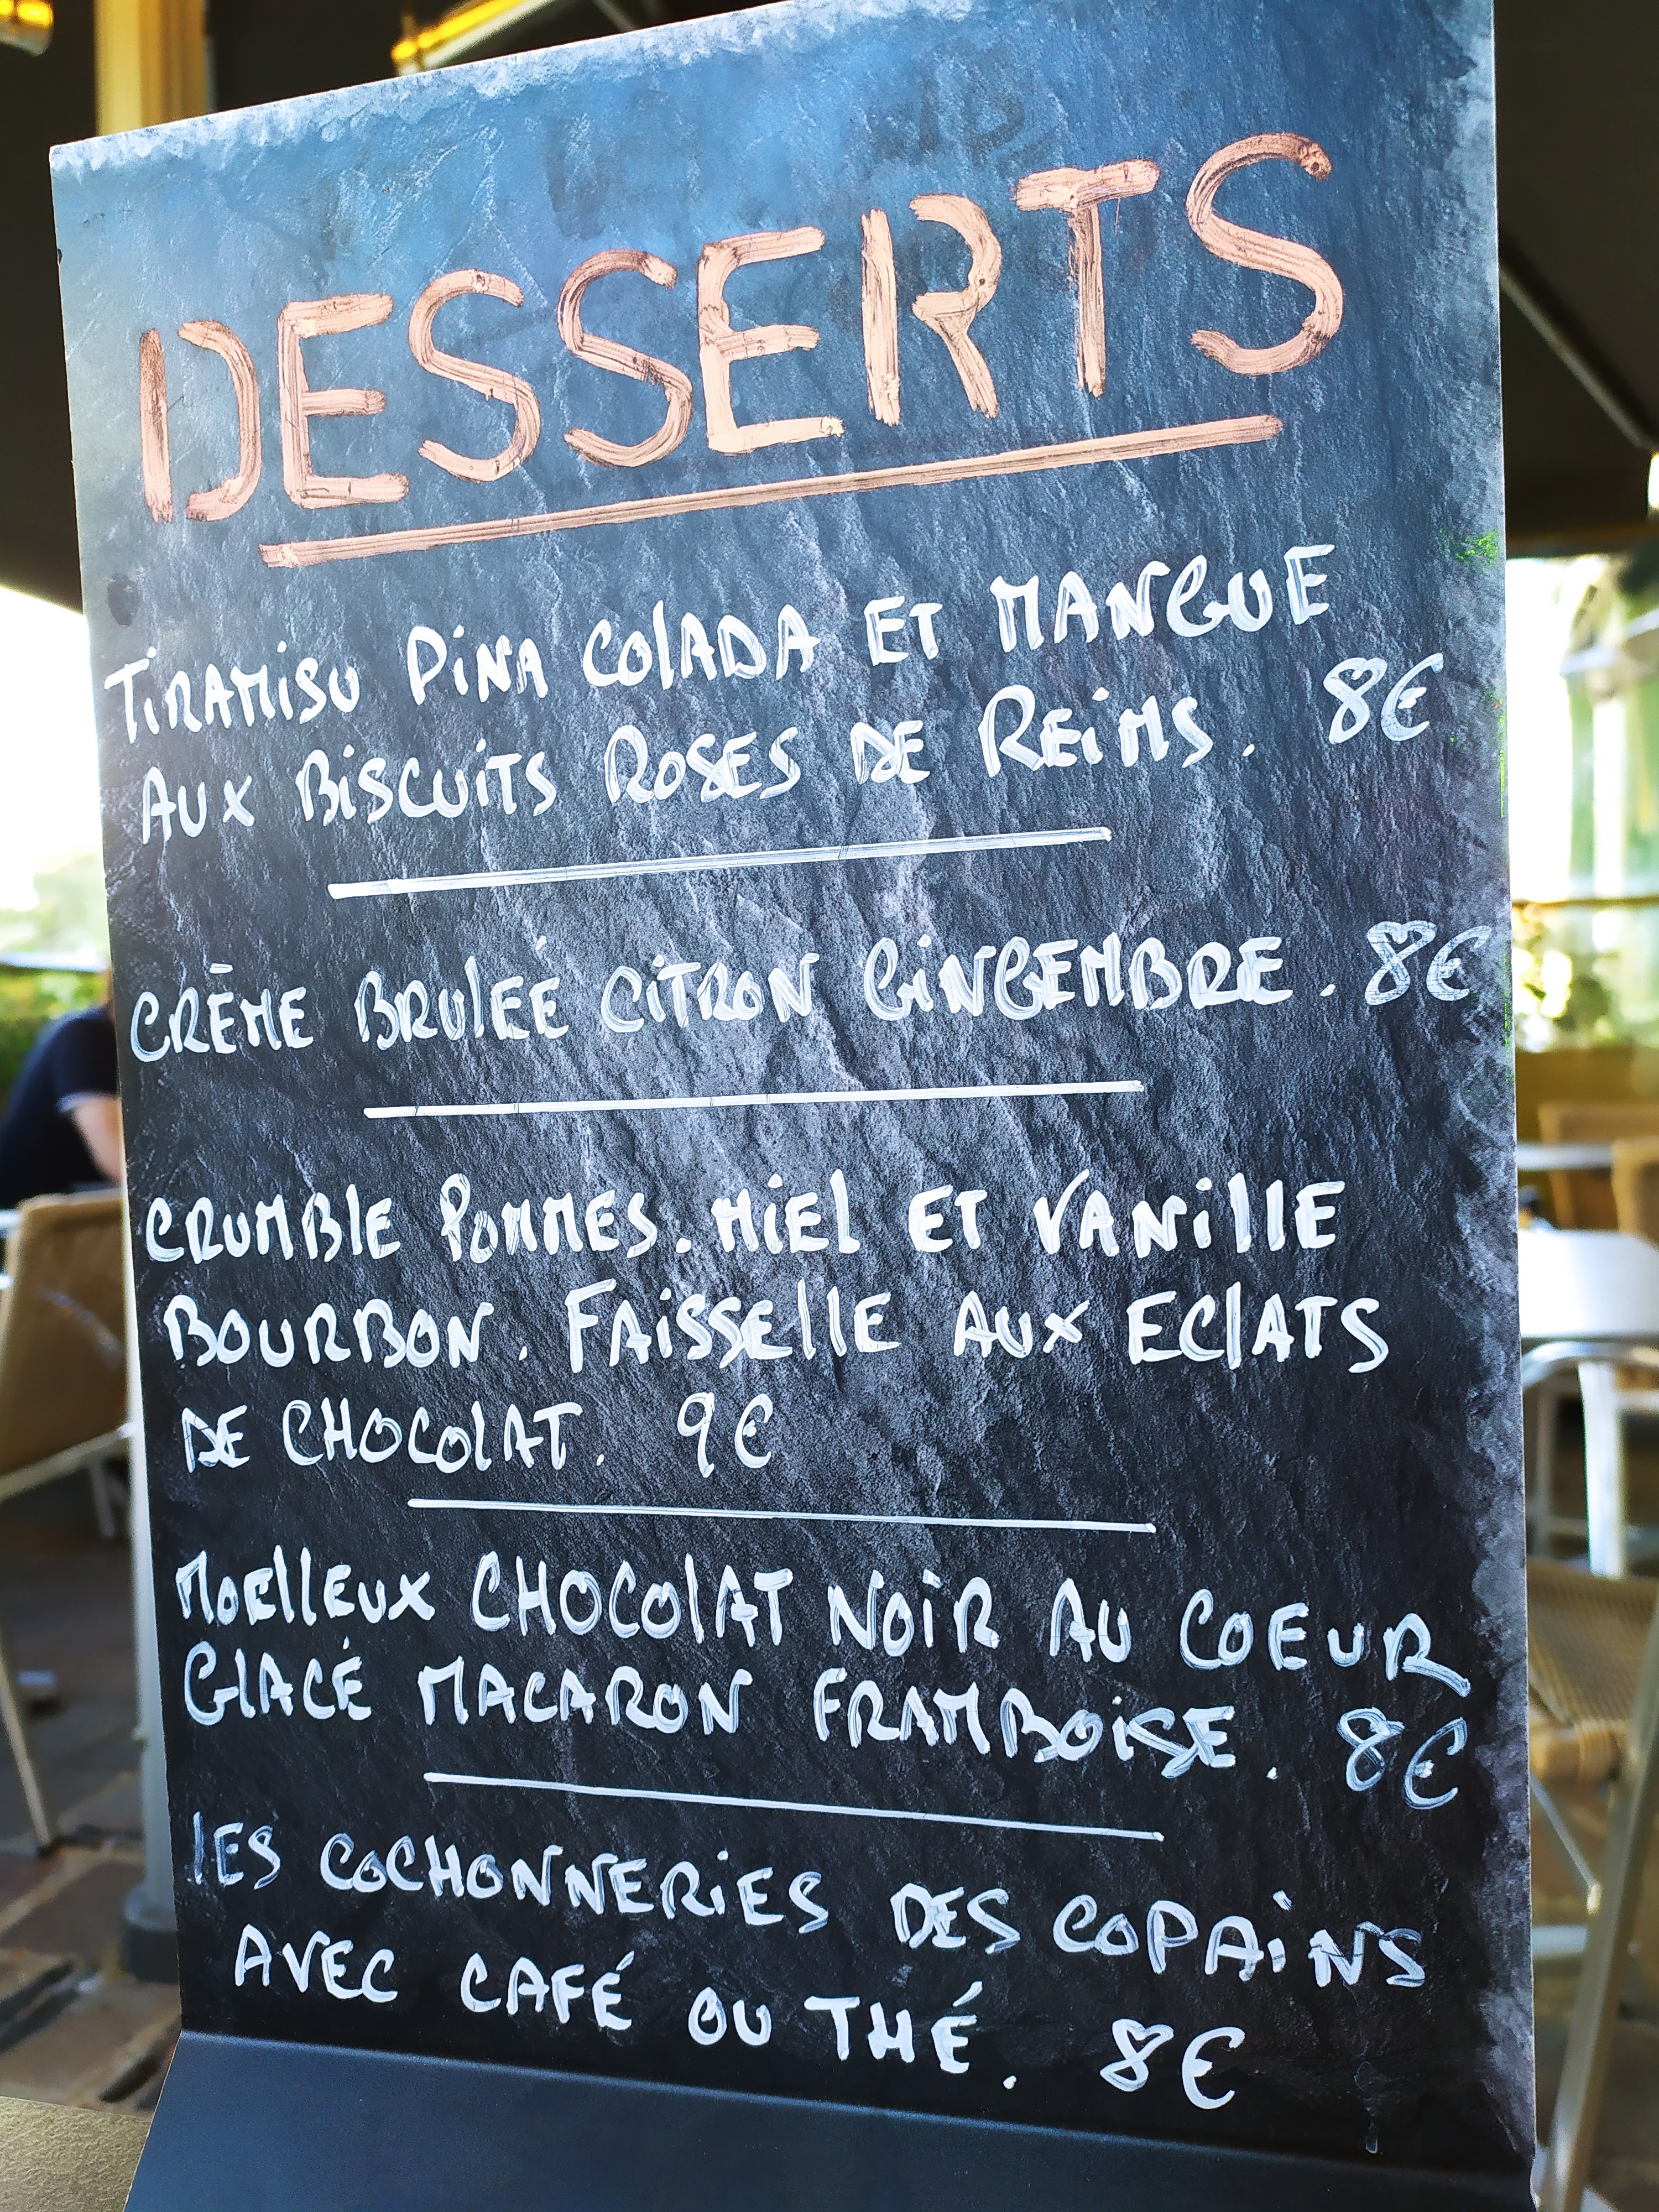 DESSERTS
TiRAMiSU PiNA COlADA ET MANGUE
AUX BiSCUiTS ROSES DE REiMS. 8€
CRÈME BRUlEÉ CiTRON GiNGEMBRE. 8€
CRUMBlE POMMES. MiEL ET VANillE
BOURBON. FAiSSEllE AUX EClATS
DE CHOCOlAT. 9€
MOEllEUX CHOCOlAT NOiR AU COEUR
GlACÉ MACARON FRAMBOiSE. 8€
lES COCHONNERiES DES COPAiNS
AVEC CAFÉ OU THÉ. 8€